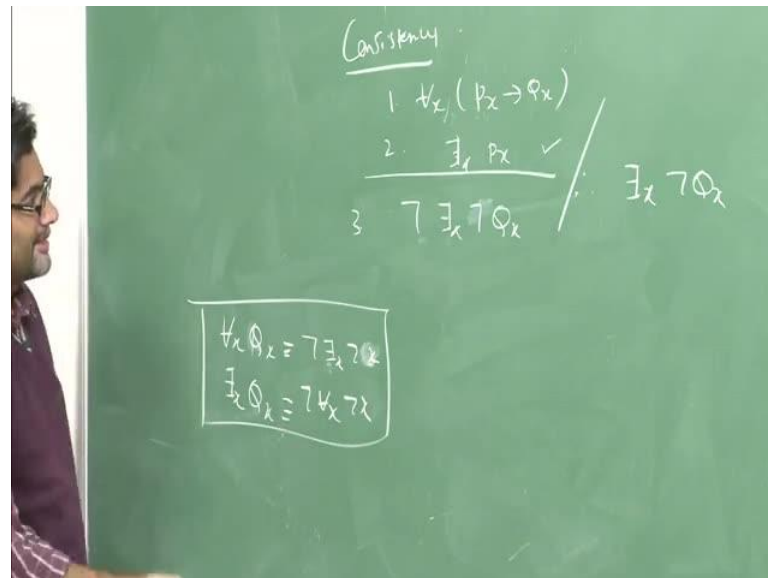 Consistency.
1. ∀x (Px → Qx)
2. ∃x Px ✓
/ ∴ ∃x ¬Qx
3 ¬∃x¬Qx
∀x Qx ≡ ¬∃x¬x
∃x Qx ≡ ¬∀x¬x